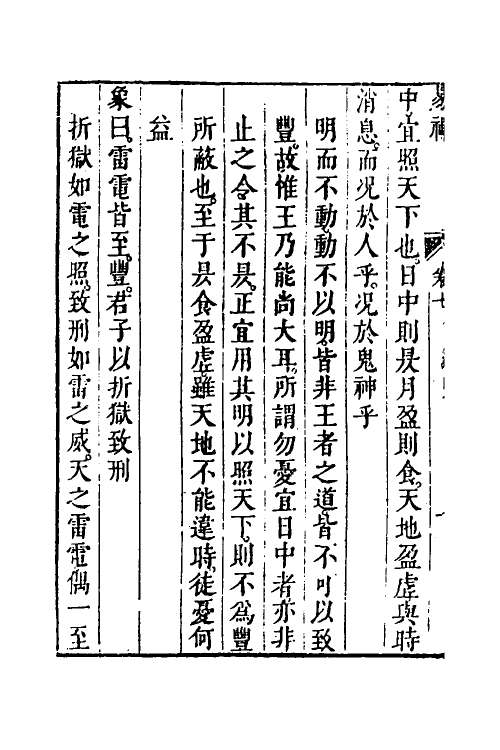 易禪
卷七
中宜照天下也。日中則昃月盈則食。天地盈虛與時
消息。而况於人乎。况於鬼神乎
明而不動。動不以明。皆非王者之道。皆不可以致
豐。故惟王乃能尚大耳。所謂勿憂宜日中者。亦非
止之令其不昃。正宜用其明以照天下。則不爲豐
所蔽也。至于昃食盈虛。雖天地不能違時。徒憂何
益
象曰。雷電皆至。豐。君子以折獄致刑
折獄如電之照。致刑如雷之威。天之雷電偶一至